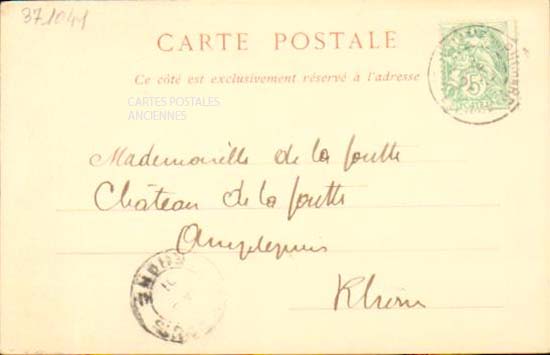 371041
CARTE POSTALE
Ce côté est exclusivement réservé à l'adresse
CARTES POSTALES
ANCIENNES
5c
Mademoiselle de la foutte
Château de la foutte
Amplepuis
Rhône
RHONE